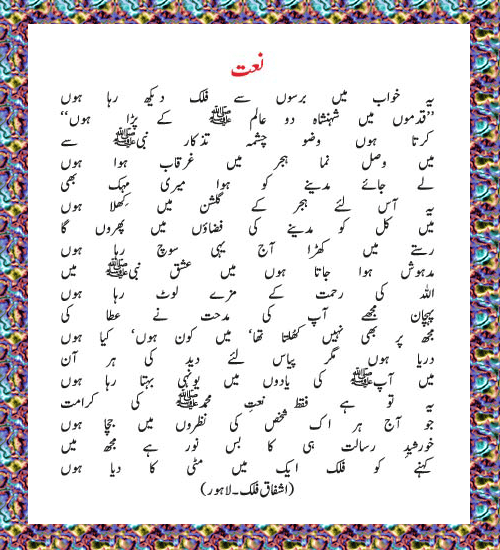 نعت
یہ خواب میں برسوں سے فلک دیکھ رہا ہوں
’’قدموں میں شہنشاہ دو عالم ﷺ کے پڑا ہوں‘‘
کرتا ہوں وضو چشمہ تذکار نبیﷺ سے
میں وصل نما ہجر میں غرقاب ہوا ہوں
لے جائے مدینے کو ہوا میری مہک بھی
یہ آس لئے ہجر کے گلشن میں کِھلا ہوں
میں کل کو مدینے کی فضاؤں میں پھروں گا
رستے میں کھڑا آج یہی سوچ رہا ہوں
مدہوش ہوا جاتا ہوں میں عشق نبیﷺ میں
اللہ کی رحمت کے مزے لوٹ رہا ہوں
پہچان مجھے آپ کی مدحت نے عطا کی
مجھ پر بھی نہیں کھلتا تھا‘ میں کون ہوں‘ کیا ہوں
دریا ہوں مگر پیاس لئے دید کی ہر آن
میں آپﷺ کی یادوں میں یونہی بہتا رہا ہوں
یہ تو ہے فقط نعتِ محمدﷺ کی کرامت
جو آج ہر اک شخص کی نظروں میں جچا ہوں
خورشیدِ رسالت ہی کا بس نور ہے مجھ میں
کہنے کو فلک ایک میں مٹی کا دیا ہوں
(اشفاق فلک۔لاہور)